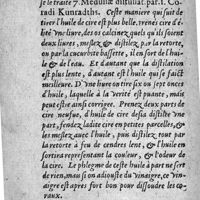 se le traité 7. Medulla distillat. par. 1. Co
radi Kunradths. Ceste maniere qui fait de
tirer l'huile de cire est plus belle. renés cire d'é
hté vne liure, des os calcinez quels qu'ils soient
deux liures, meslez & distilez par la retorte,
ou par la cucurbite bassette, il en sort de l'huile
& de l'eau. Et d'autant que la distilation
est plus lente, d'autant est l'huile qui se faict
meilleure. D'vne liure on tire huict ou sept onces
d'huile, laquelle à la verité est puante, mais
peut estre ainsi corrigee. Prenez deux parts de
cire neufue, d'huile de cire desia distilee vne
part, fendez ladite cire en petites parcelles, &
les meslez auec l'huile, puis distilez tout par
la retorte à feu de cendres lent, & l'huile en
sortira representant la couleur, & l'odeur de
la cire. Le phlegme de ceste huile à part ne sert
de rien, mais si on adiouste du vinaigre, ce vin-
aigre est apres fort bon pour dissoudre les co-
raux.